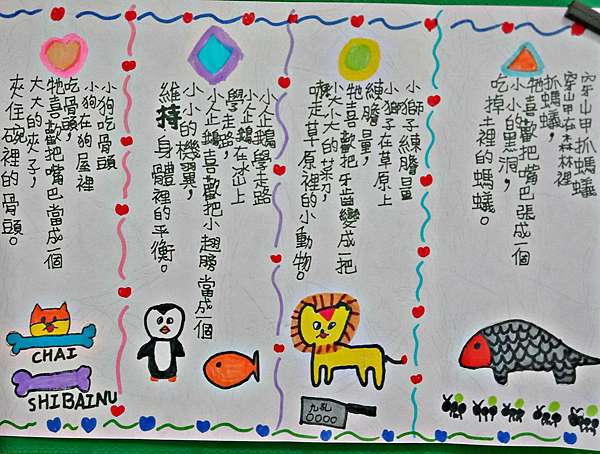 穿山甲抓螞蟻
穿山甲在森林裡
抓螞蟻,
牠喜歡把嘴巴張成一個
小小的黑洞,
吃掉土裡的螞蟻。
小獅子練膽量
小獅子在草原上
練膽量,
牠喜歡把牙齒變成一把
大大的菜刀,
嚇走草原裡的小動物。
小企鵝學走路
小企鵝在冰上
學走路,
小企鵝喜歡把小翅膀當成一個
小小的機翼,
維持身體裡的平衡。
小狗吃骨頭
小狗在狗屋裡
吃骨頭,
牠喜歡把嘴巴當成一個
大大的夾子,
夾住碗裡的骨頭。
CHAI
SHIBAINU